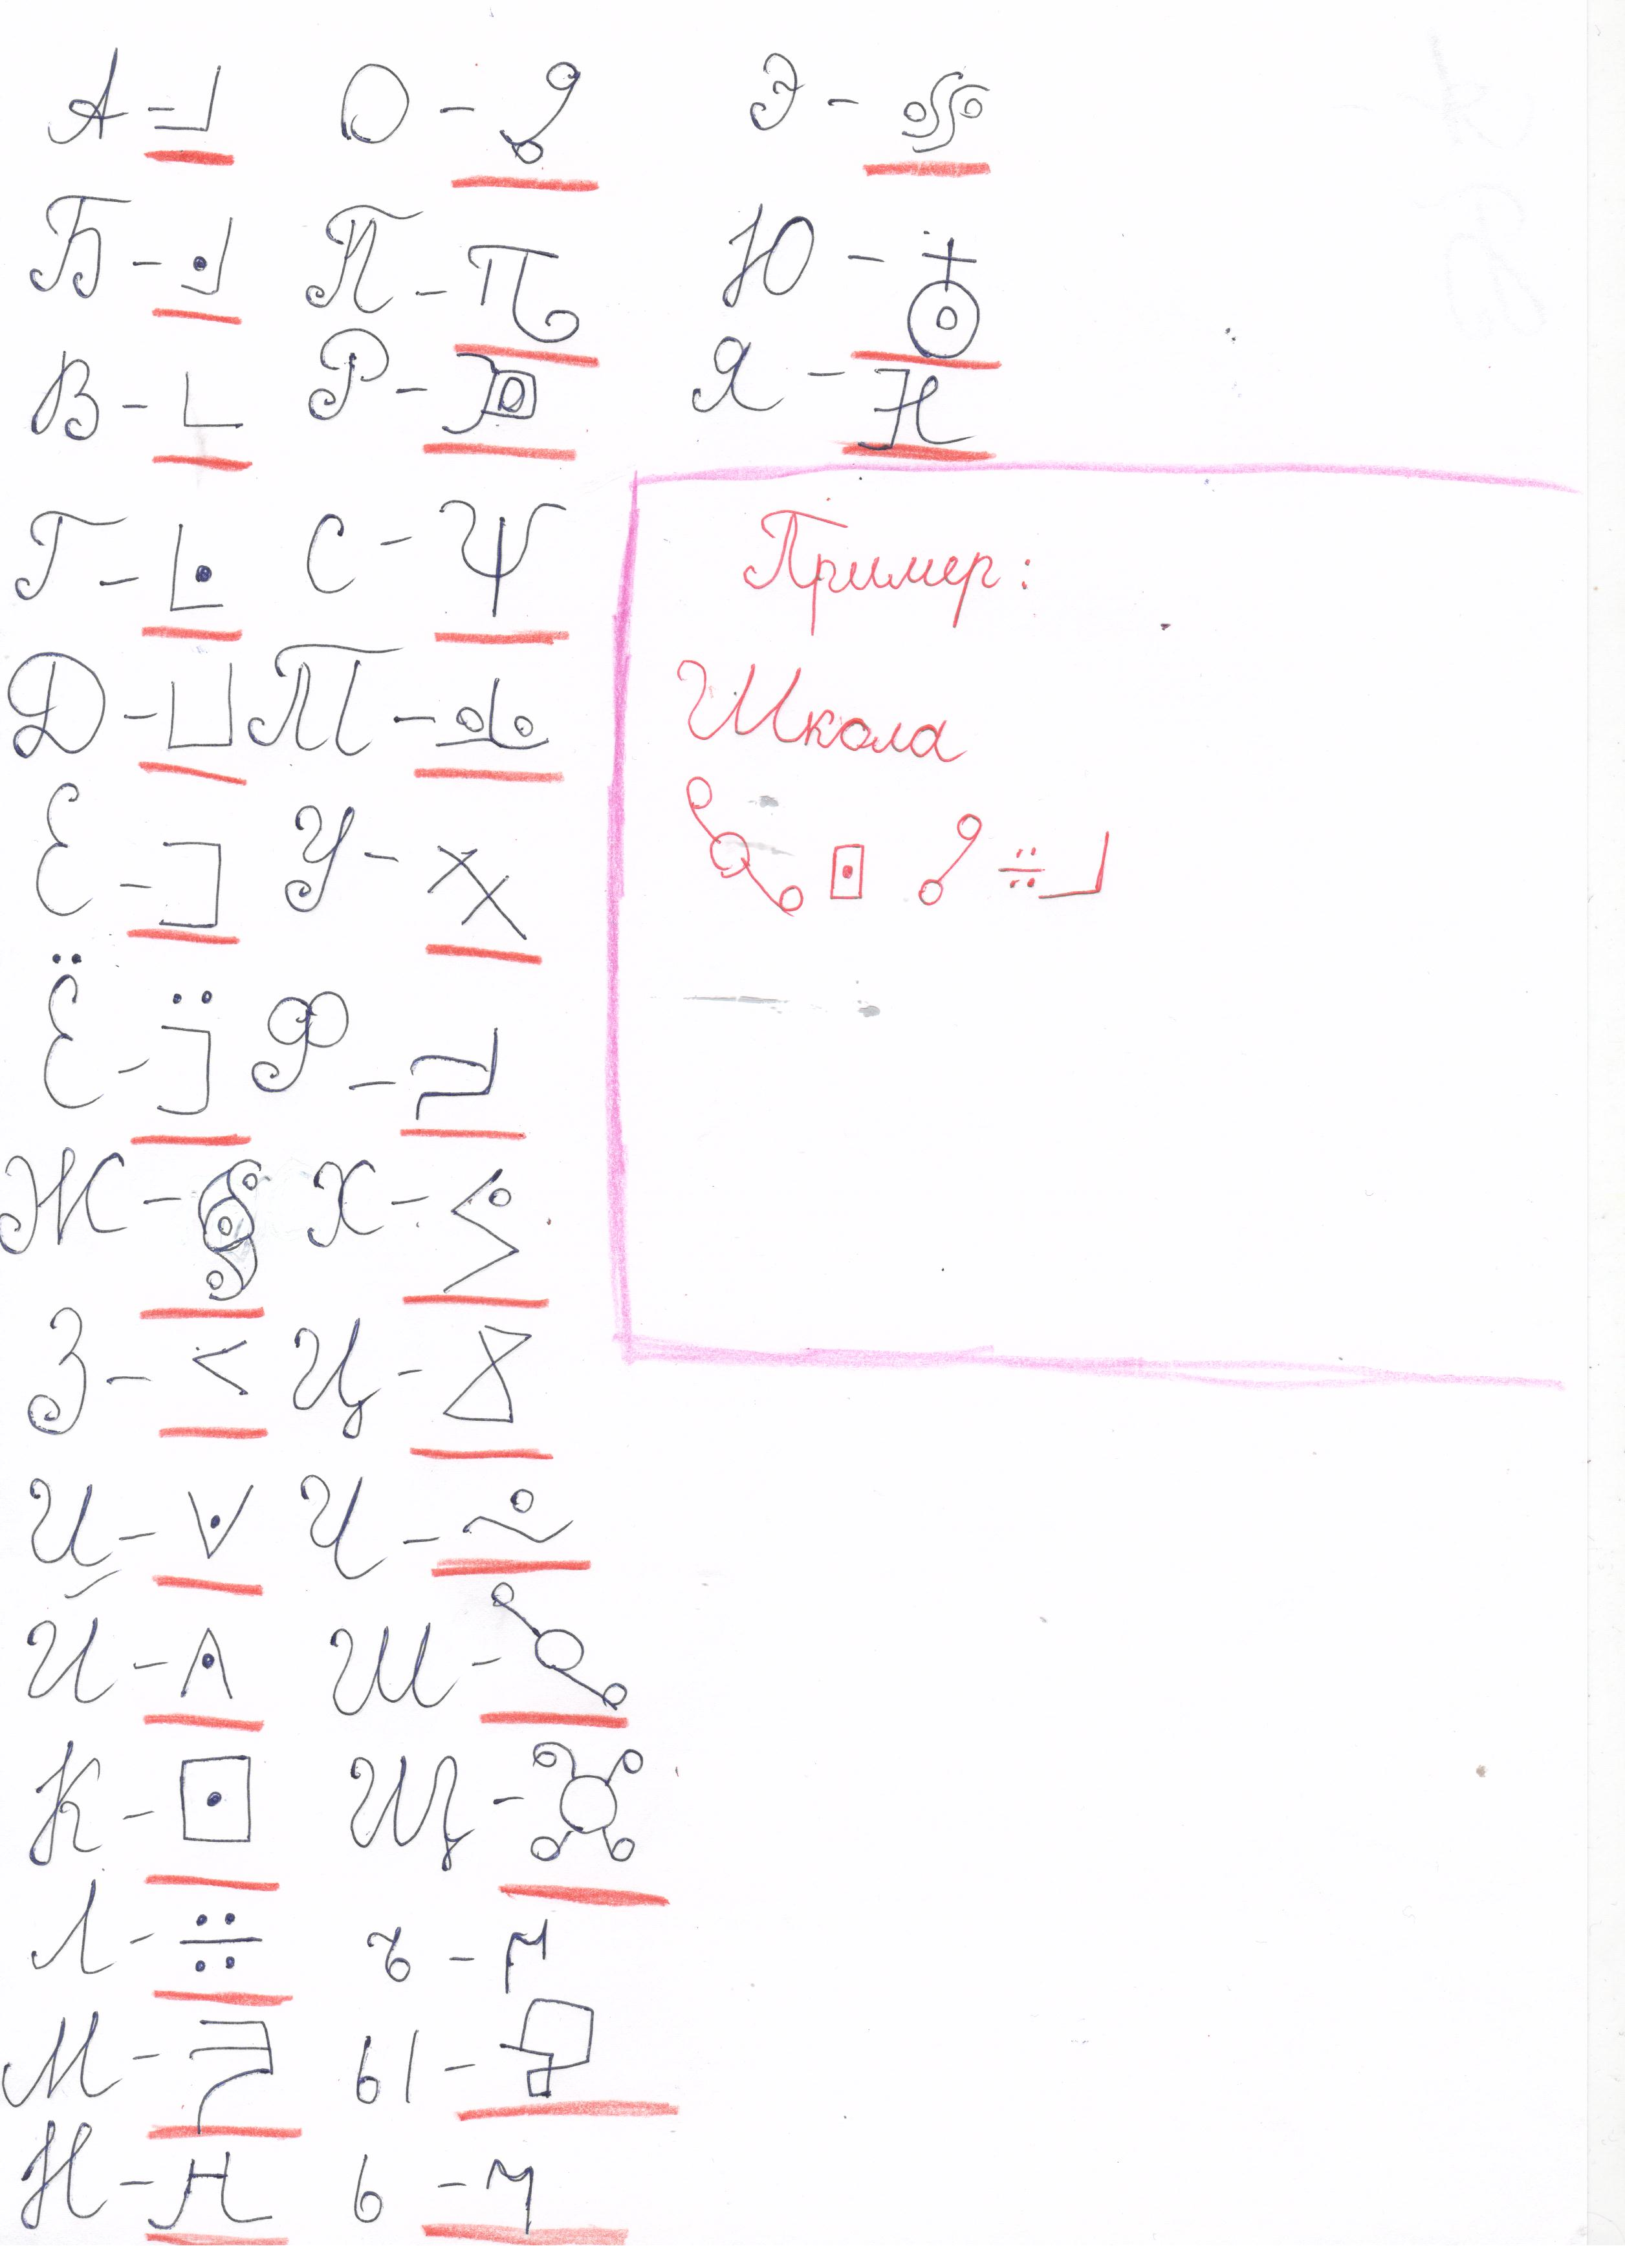 А -
Б -
В -
Г -
Д -
Е -
Ё -
Ж -
З -
И -
Й -
К -
Л -
М -
Н -
О -
П -
Р -
С -
Т -
У -
Ф -
Х -
Ц -
Ч -
Ш -
Щ -
ъ -
ы -
ь -
Э -
Ю -
Я -
Пример:
Школа